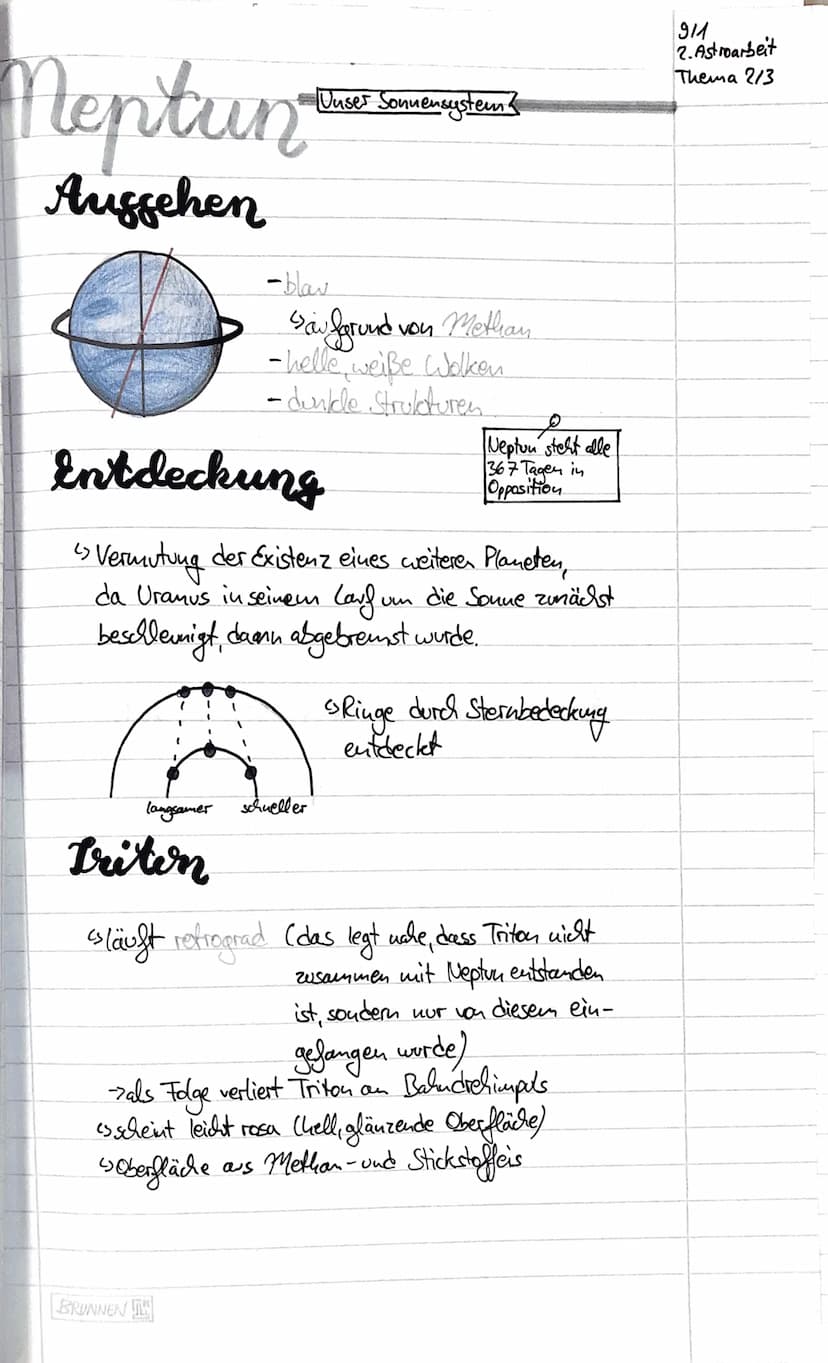 9/1
2. Astroarbeit
Thema 2/3
Neptun
Unser Sonnensystem
Aussehen
- blau
↳ aufgrund von Methan
- helle, weiße Wolken
- dunkle Strukturen
Neptun steht alle
367 Tagen in
Opposition
Entdeckung
↳ Vermutung der Existenz eines weiteren Planeten,
da Uranus in seinem Lauf um die Sonne zunächst
beschleunigt, dann abgebremst wurde.
↳ Ringe durch Sternbedeckung
entdeckt
langsamer schneller
Triton
↳ läuft retrograd (das legt nahe, dass Triton nicht
zusammen mit Neptun entstanden
ist, sondern nur von diesem ein-
gefangen wurde)
→ als Folge verliert Triton an Bahndrehimpuls
↳ scheint leicht rosa (hell, glänzende Oberfläche)
↳ Oberfläche aus Methan- und Stickstoffeis
BRUNNEN